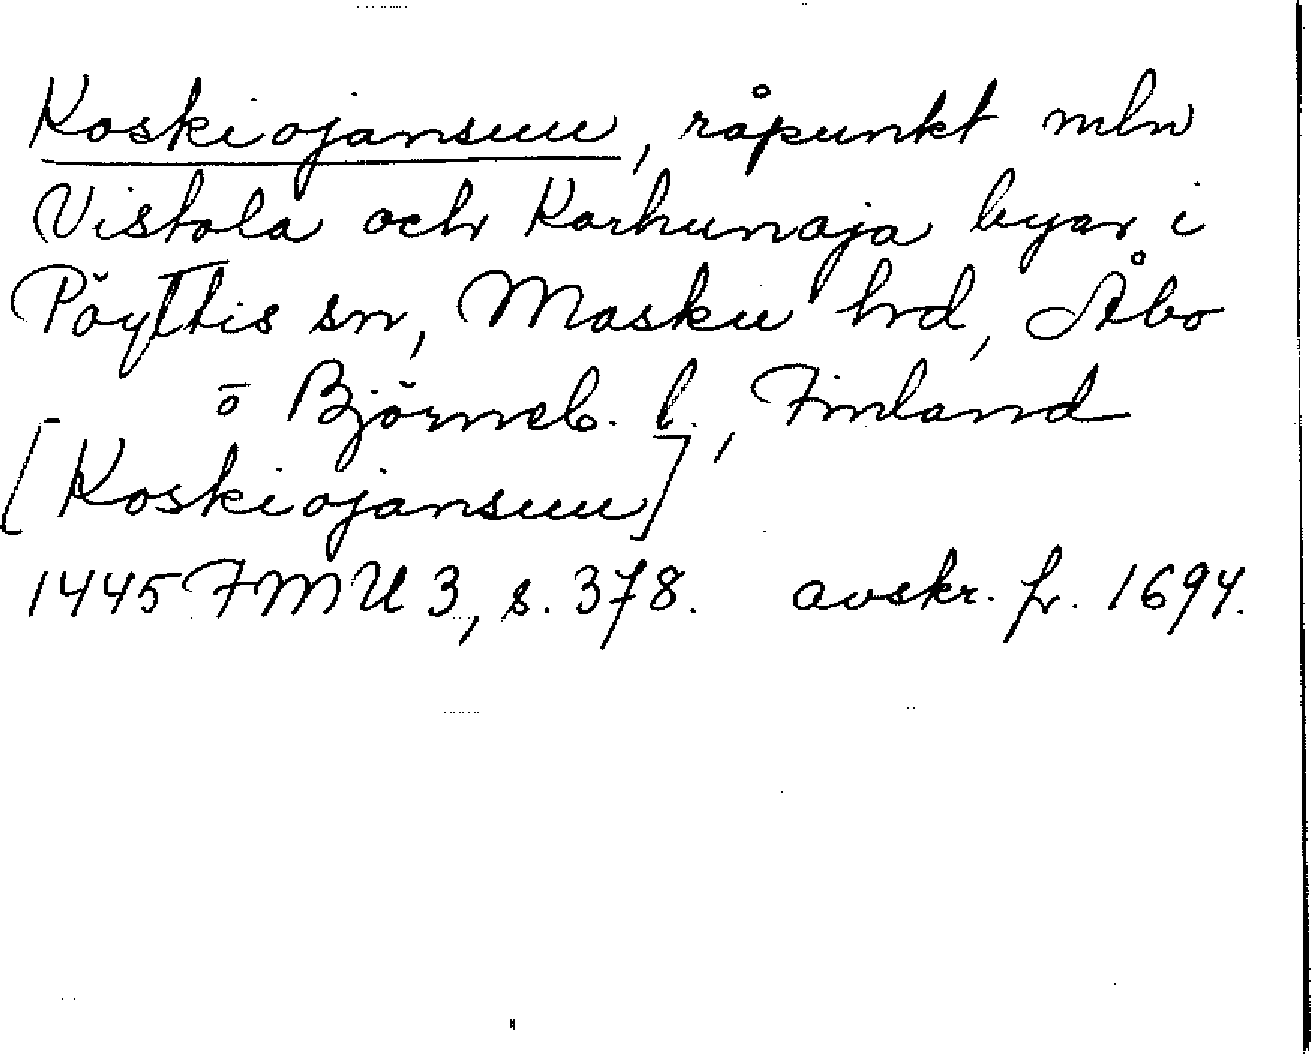 Koskiojansuu, råpunkt mln
Vistola och Karhunaja byar i
Pöyttis sn, Masku hrd, Åbo
o Björneb. l., Finland
[Koskiojansuu]
1445 FMU 3, s. 378. avskr. fr. 1694.